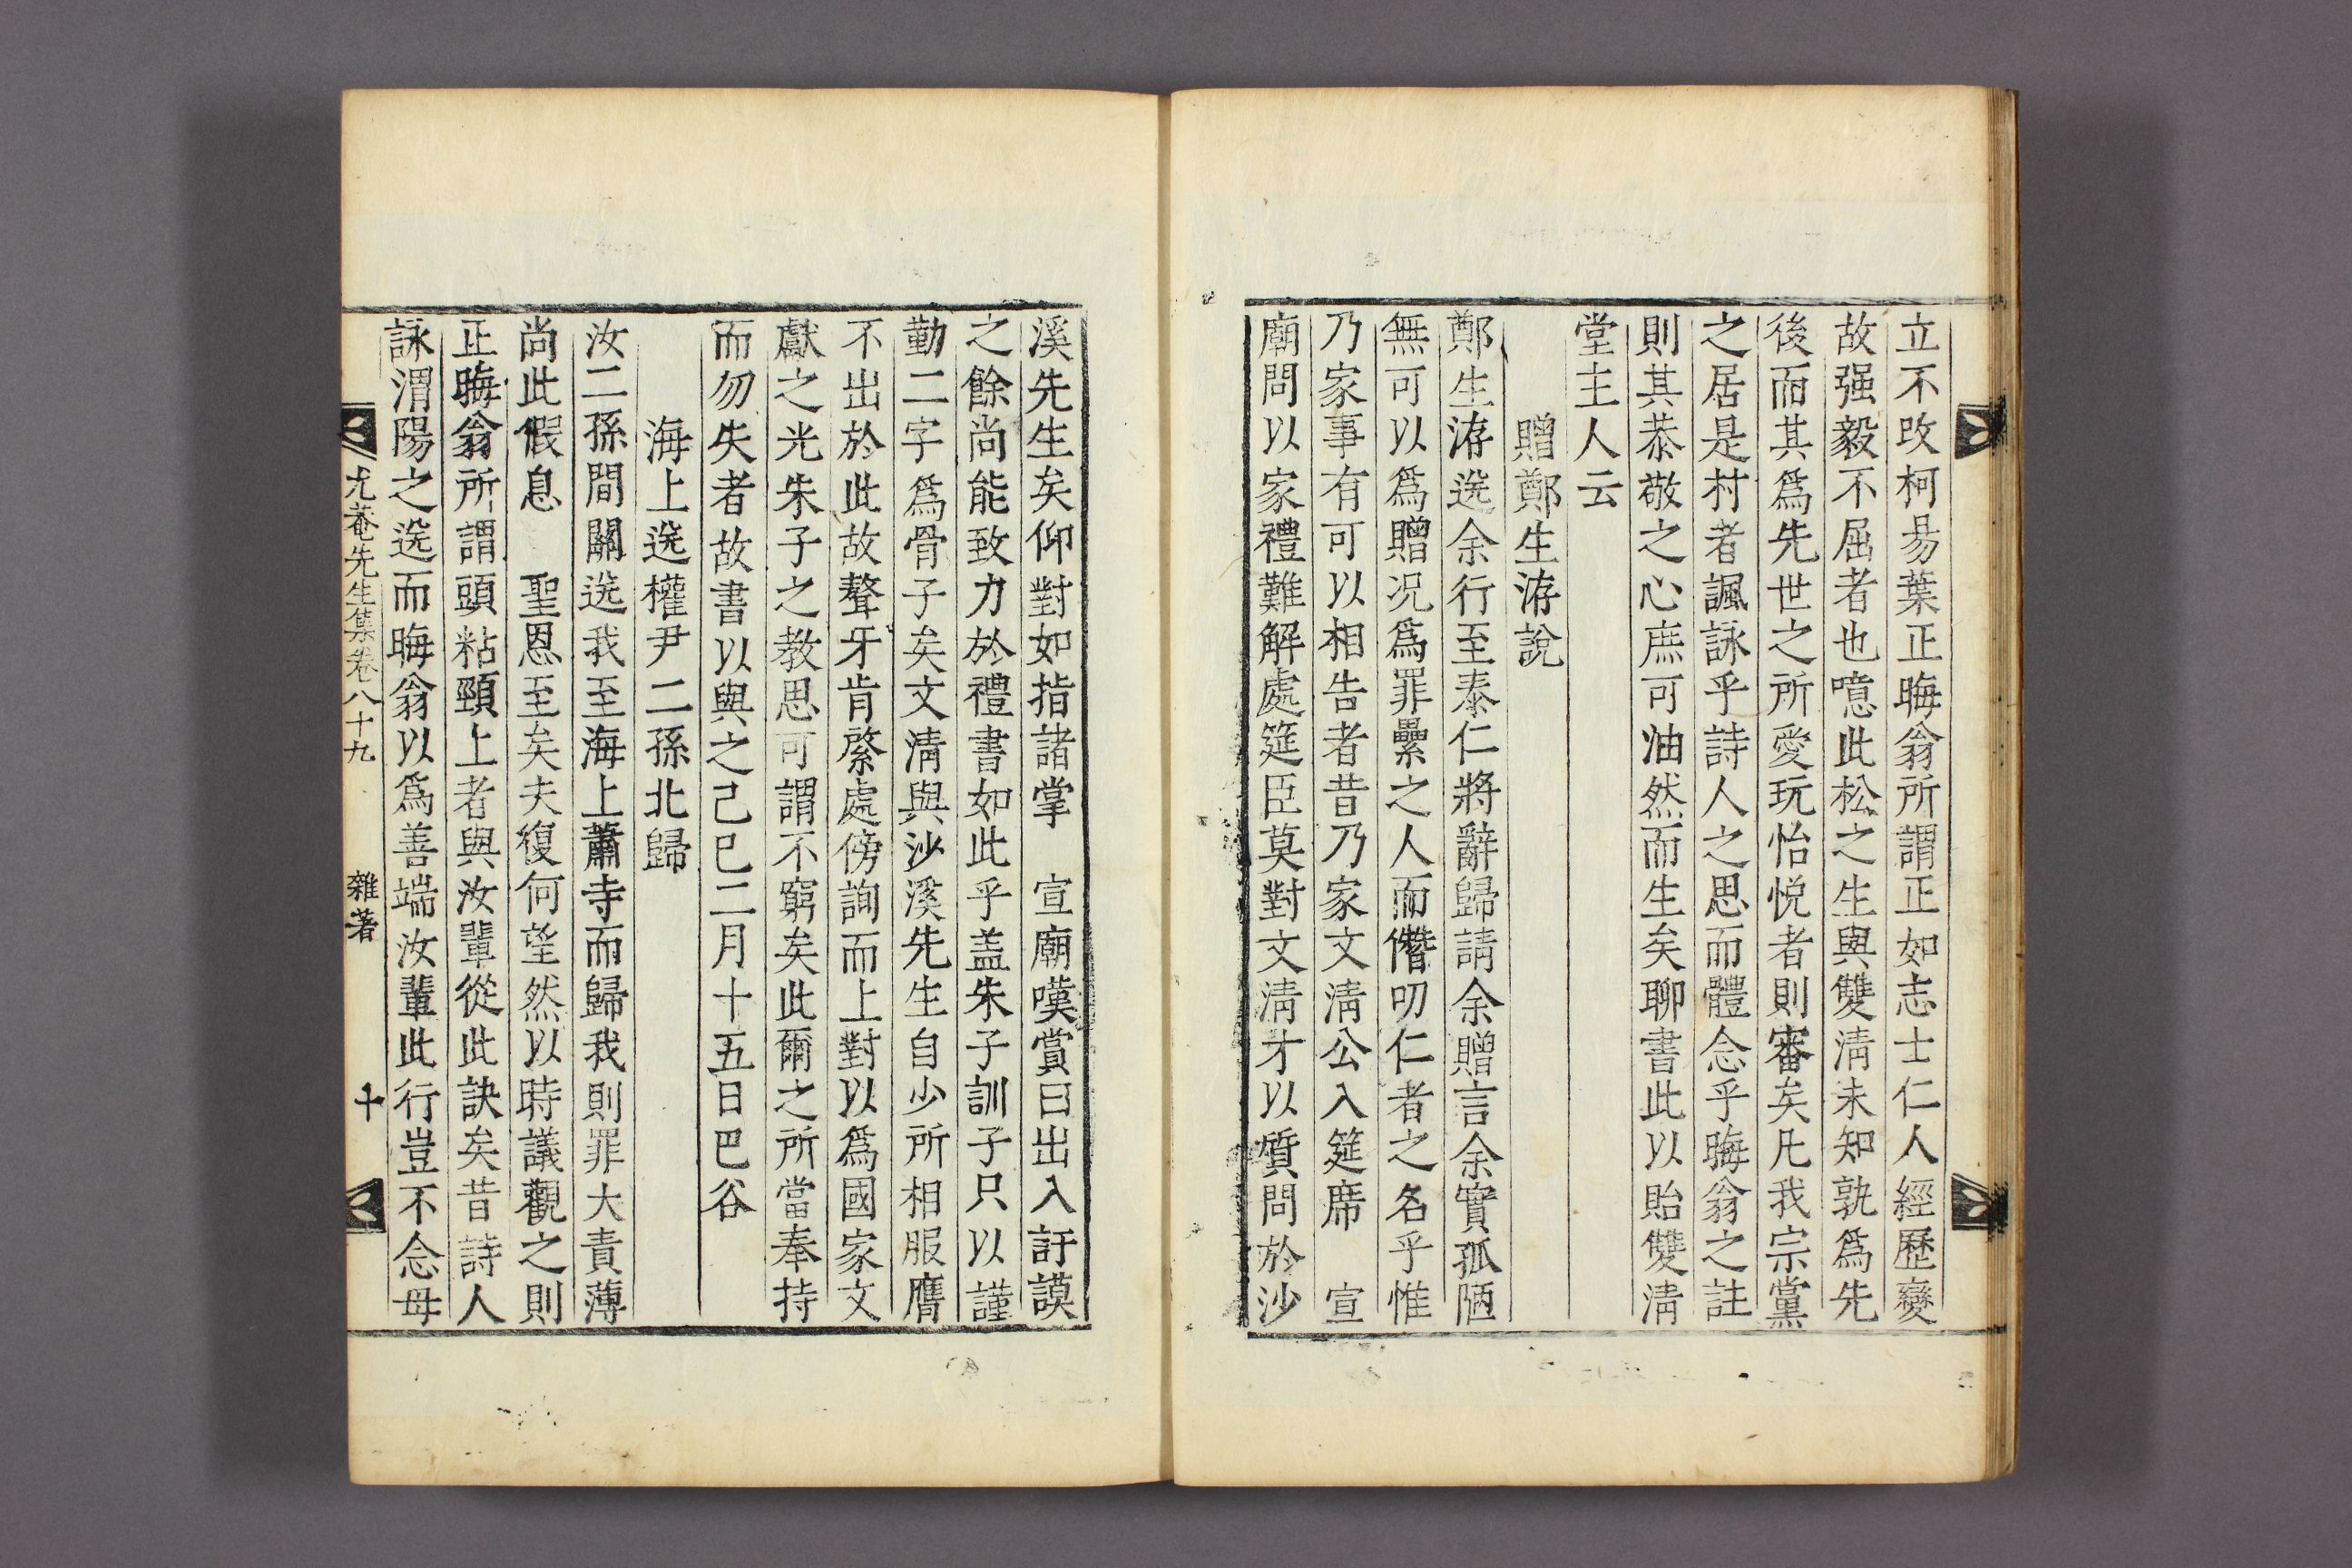 立不改柯易葉正晦翁所謂正如志士仁人經歷變
故强毅不屈者也噫此松之生與雙淸未知孰爲先
後而其爲先世之所愛玩怡悅者則審矣凡我宗黨
之居是村者諷詠乎詩人之思而體念乎晦翁之註
則其恭敬之心庶可油然而生矣聊書此以貽雙淸
堂主人云
贈鄭生洊說
鄭生洊送余行至泰仁將辭歸請余贈言余實孤陋
無可以爲贈况爲罪纍之人而僭叨仁者之名乎惟
乃家事有可以相告者昔乃家文淸公入筵席　宣
廟問以家禮難解處筵臣莫對文淸才以質問於沙
溪先生矣仰對如指諸掌　宣廟嘆賞曰出入訏謨
之餘尙能致力於禮書如此乎盖朱子訓子只以謹
勤二字爲骨子矣文淸與沙溪先生自少所相服膺
不出於此故聱牙肯綮處傍詢而上對以爲國家文
獻之光朱子之敎思可謂不窮矣此爾之所當奉持
而勿失者故書以與之己巳二月十五日巴谷
海上送權尹二孫北歸
汝二孫間關送我至海上蕭寺而歸我則罪大責薄
尙此假息　聖恩至矣夫復何望然以時議觀之則
正晦翁所謂頭粘頸上者與汝輩從此訣矣昔詩人
詠渭陽之送而晦翁以爲善端汝輩此行豈不念母
尤菴先生集卷八十九　雜著　十